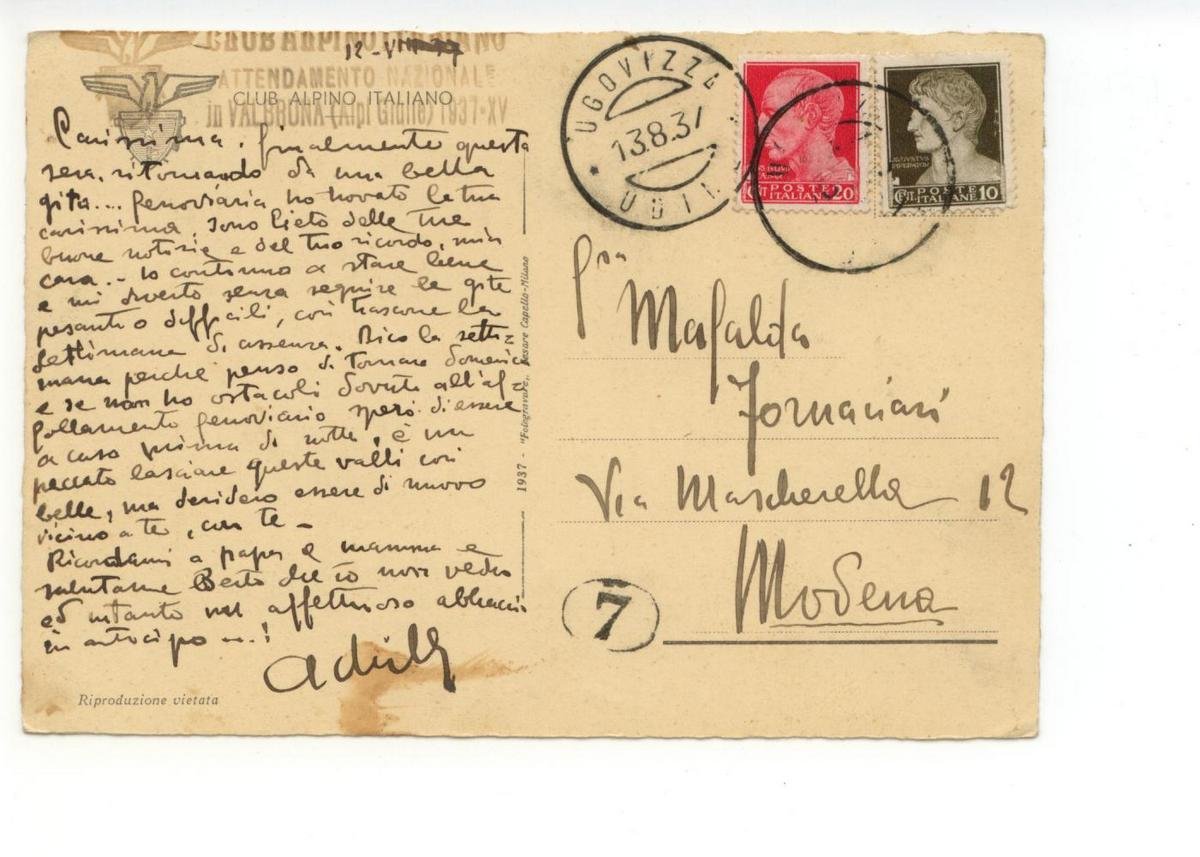 CLUB ALPINO ITALIANO
12-VIII-37
ATTENDAMENTO NAZIONALE
CLUB ALPINO ITALIANO
in VALBRUNA (Alpi Giulie) 1937-XV
Carissima, finalmente questa
sera, ritornando da una bella
gita... ferroviaria ho trovato la tua
carissima, sono lieto delle tue
buone notizie e del tuo ricordo, mia
cara - Io continuo a stare bene
e mi diverto senza seguire le gite
pesanti o difficili, così trascorre la
settimana di assenza. Dico la setti=
mana perchè penso di tornare domenica
e se non ho ostacoli dovuti all'af=
follamento ferroviario spero di essere
a casa prima di notte, è un
peccato lasciare queste valli così
belle, ma desidero essere di nuovo
vicino a te, con te -
Ricordami a papà e mamma e
salutame Berto che io non vedrò
ed intanto un affettuoso abbraccio
in anticipo
Achille
Riproduzione vietata
1937 - "Fotogravure" Cesare Capello-Milano
UGOVIZZA
13.8.37
UDINE
POSTE
ITALIANE
20
POSTE
ITALIANE
10
Mafalda
Fornaciari
Via Mascherella 12
Modena
7